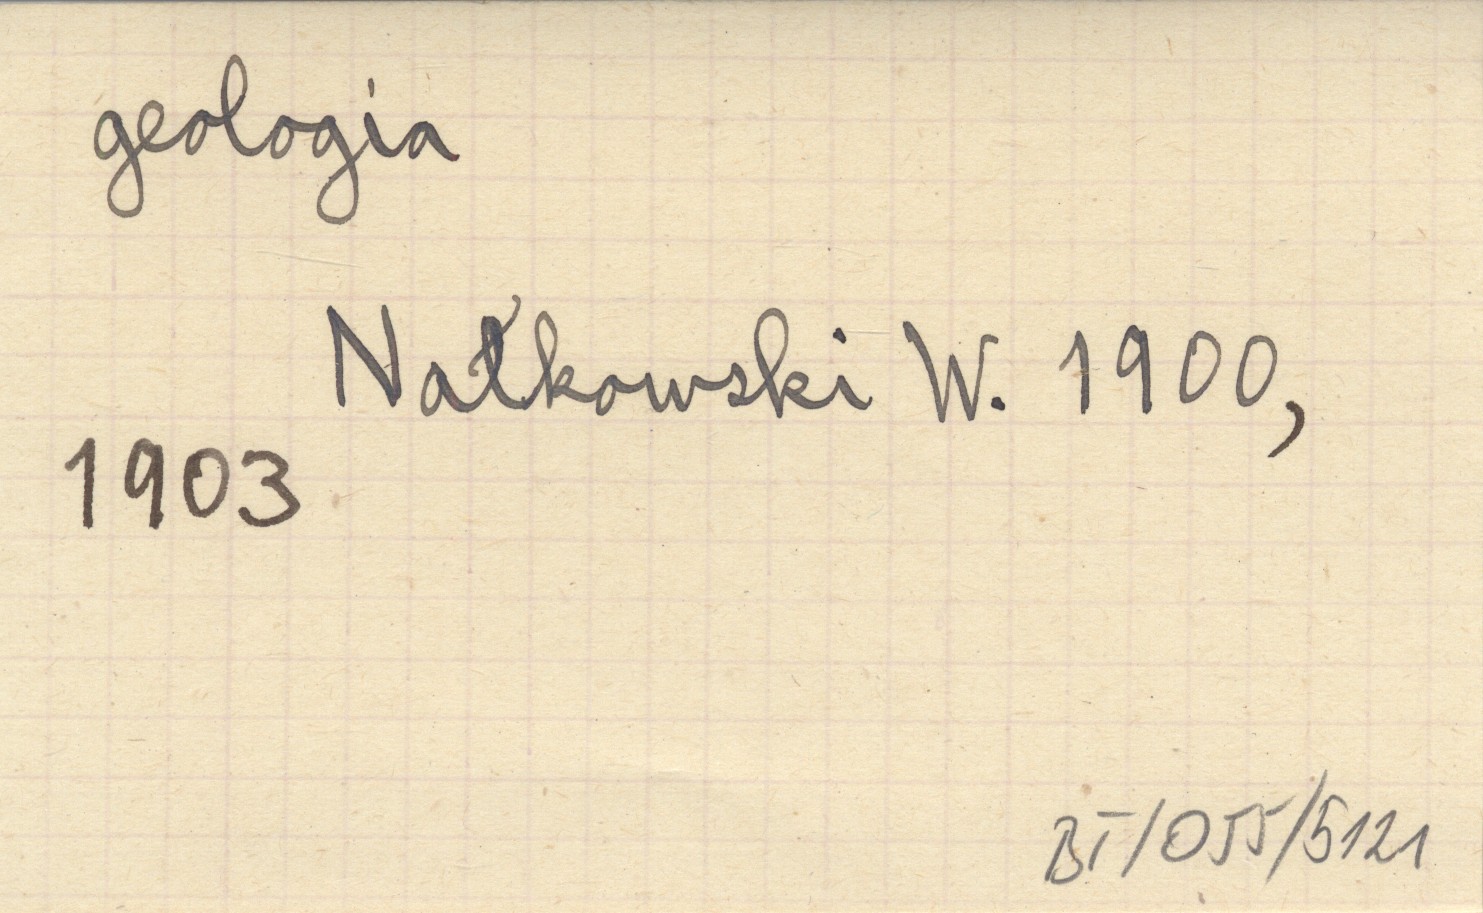 geologia
Nałkowski W. 1900,
1903
BT/055/5121